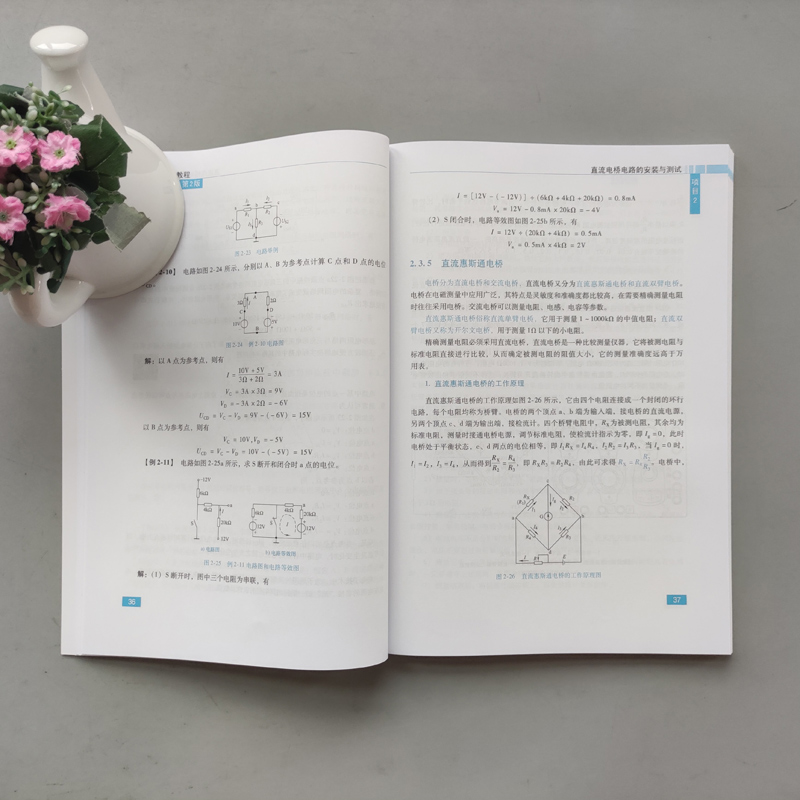 教程
第2版
图2-23 电路举例
2-10】 电路如图 2-24 所示，分别以 A、B 为参考点计算 C 点和 D 点的电位
图2-24 例2-10电路图
解：以 A 点为参考点，则有
I = (10V + 5V)/(3Ω + 2Ω) = 3A
V_C = 3A × 3Ω = 9V
V_D = -3A × 2Ω = -6V
U_CD = V_C - V_D = 9V - (-6V) = 15V
以 B 点为参考点，则有
V_C = 10V, V_D = -5V
U_CD = V_C - V_D = 10V - (-5V) = 15V
【例2-11】 电路如图 2-25a 所示，求 S 断开和闭合时 a 点的电位。
a) 电路图 b) 电路等效图
图2-25 例2-11电路图和电路等效图
解：(1) S 断开时，图中三个电阻为串联，有
36
直流电桥电路的安装与测试
项目2
I = [12V - (-12V)] ÷ (6kΩ + 4kΩ + 20kΩ) = 0.8mA
V_a = 12V - 0.8mA × 20kΩ = -4V
(2) S 闭合时，电路等效图如图 2-25b 所示，有
I = 12V ÷ (20kΩ + 4kΩ) = 0.5mA
V_a = 0.5mA × 4kΩ = 2V
2.3.5 直流惠斯通电桥
电桥分为直流电桥和交流电桥，直流电桥又分为直流惠斯通电桥和直流双臂电桥。
电桥在电磁测量中应用广泛，其特点是灵敏度和准确度都比较高，在需要精确测量电阻
时往往采用电桥，交流电桥可以测量电阻、电感、电容等参数。
直流惠斯通电桥俗称直流单臂电桥，它用于测量 1~1000kΩ 的中值电阻；直流双
臂电桥又称为开尔文电桥，用于测量 1Ω 以下的小电阻。
精确测量电阻必须采用直流电桥，直流电桥是一种比较测量仪器，它将被测电阻与
标准电阻直接进行比较，从而确定被测电阻的阻值大小，它的测量准确度远高于万
用表。
1. 直流惠斯通电桥的工作原理
直流惠斯通电桥的工作原理如图 2-26 所示，它由四个电阻连接成一个封闭的环行
电路，每个电阻均称为桥臂，电桥的两个顶点 a、b 端为输入端，接电桥的直流电源，
另两个顶点 c、d 端为输出端，接检流计，四个桥臂电阻中，R_X 为被测电阻，其余均为
标准电阻，测量时接通电桥电源，调节标准电阻，使检流计指示为零，即 I_g = 0，此时
电桥处于平衡状态，c、d 两点的电位相等，即 I_1R_X = I_4R_4，I_2R_2 = I_3R_3，当 I_g = 0 时，
I_1 = I_2，I_3 = I_4，从而得到 R_X/R_2 = R_4/R_3，即 R_XR_3 = R_2R_4，由此可求得 R_X = R_2 R_4/R_3，电桥中，
图2-26 直流惠斯通电桥的工作原理图
37